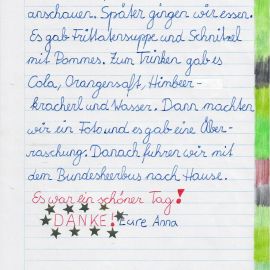 anschauen. Später gingen wir essen.
Es gab Frittatensuppe und Schnitzel
mit Pommes. Zum Trinken gab es
Cola, Orangensaft, Himbeer-
kracherl und Wasser. Dann machten
wir ein Foto und es gab eine Über-
raschung. Danach fuhren wir mit
dem Bundesheerbus nach Hause.
Es war ein schöner Tag!
DANKE! Eure Anna